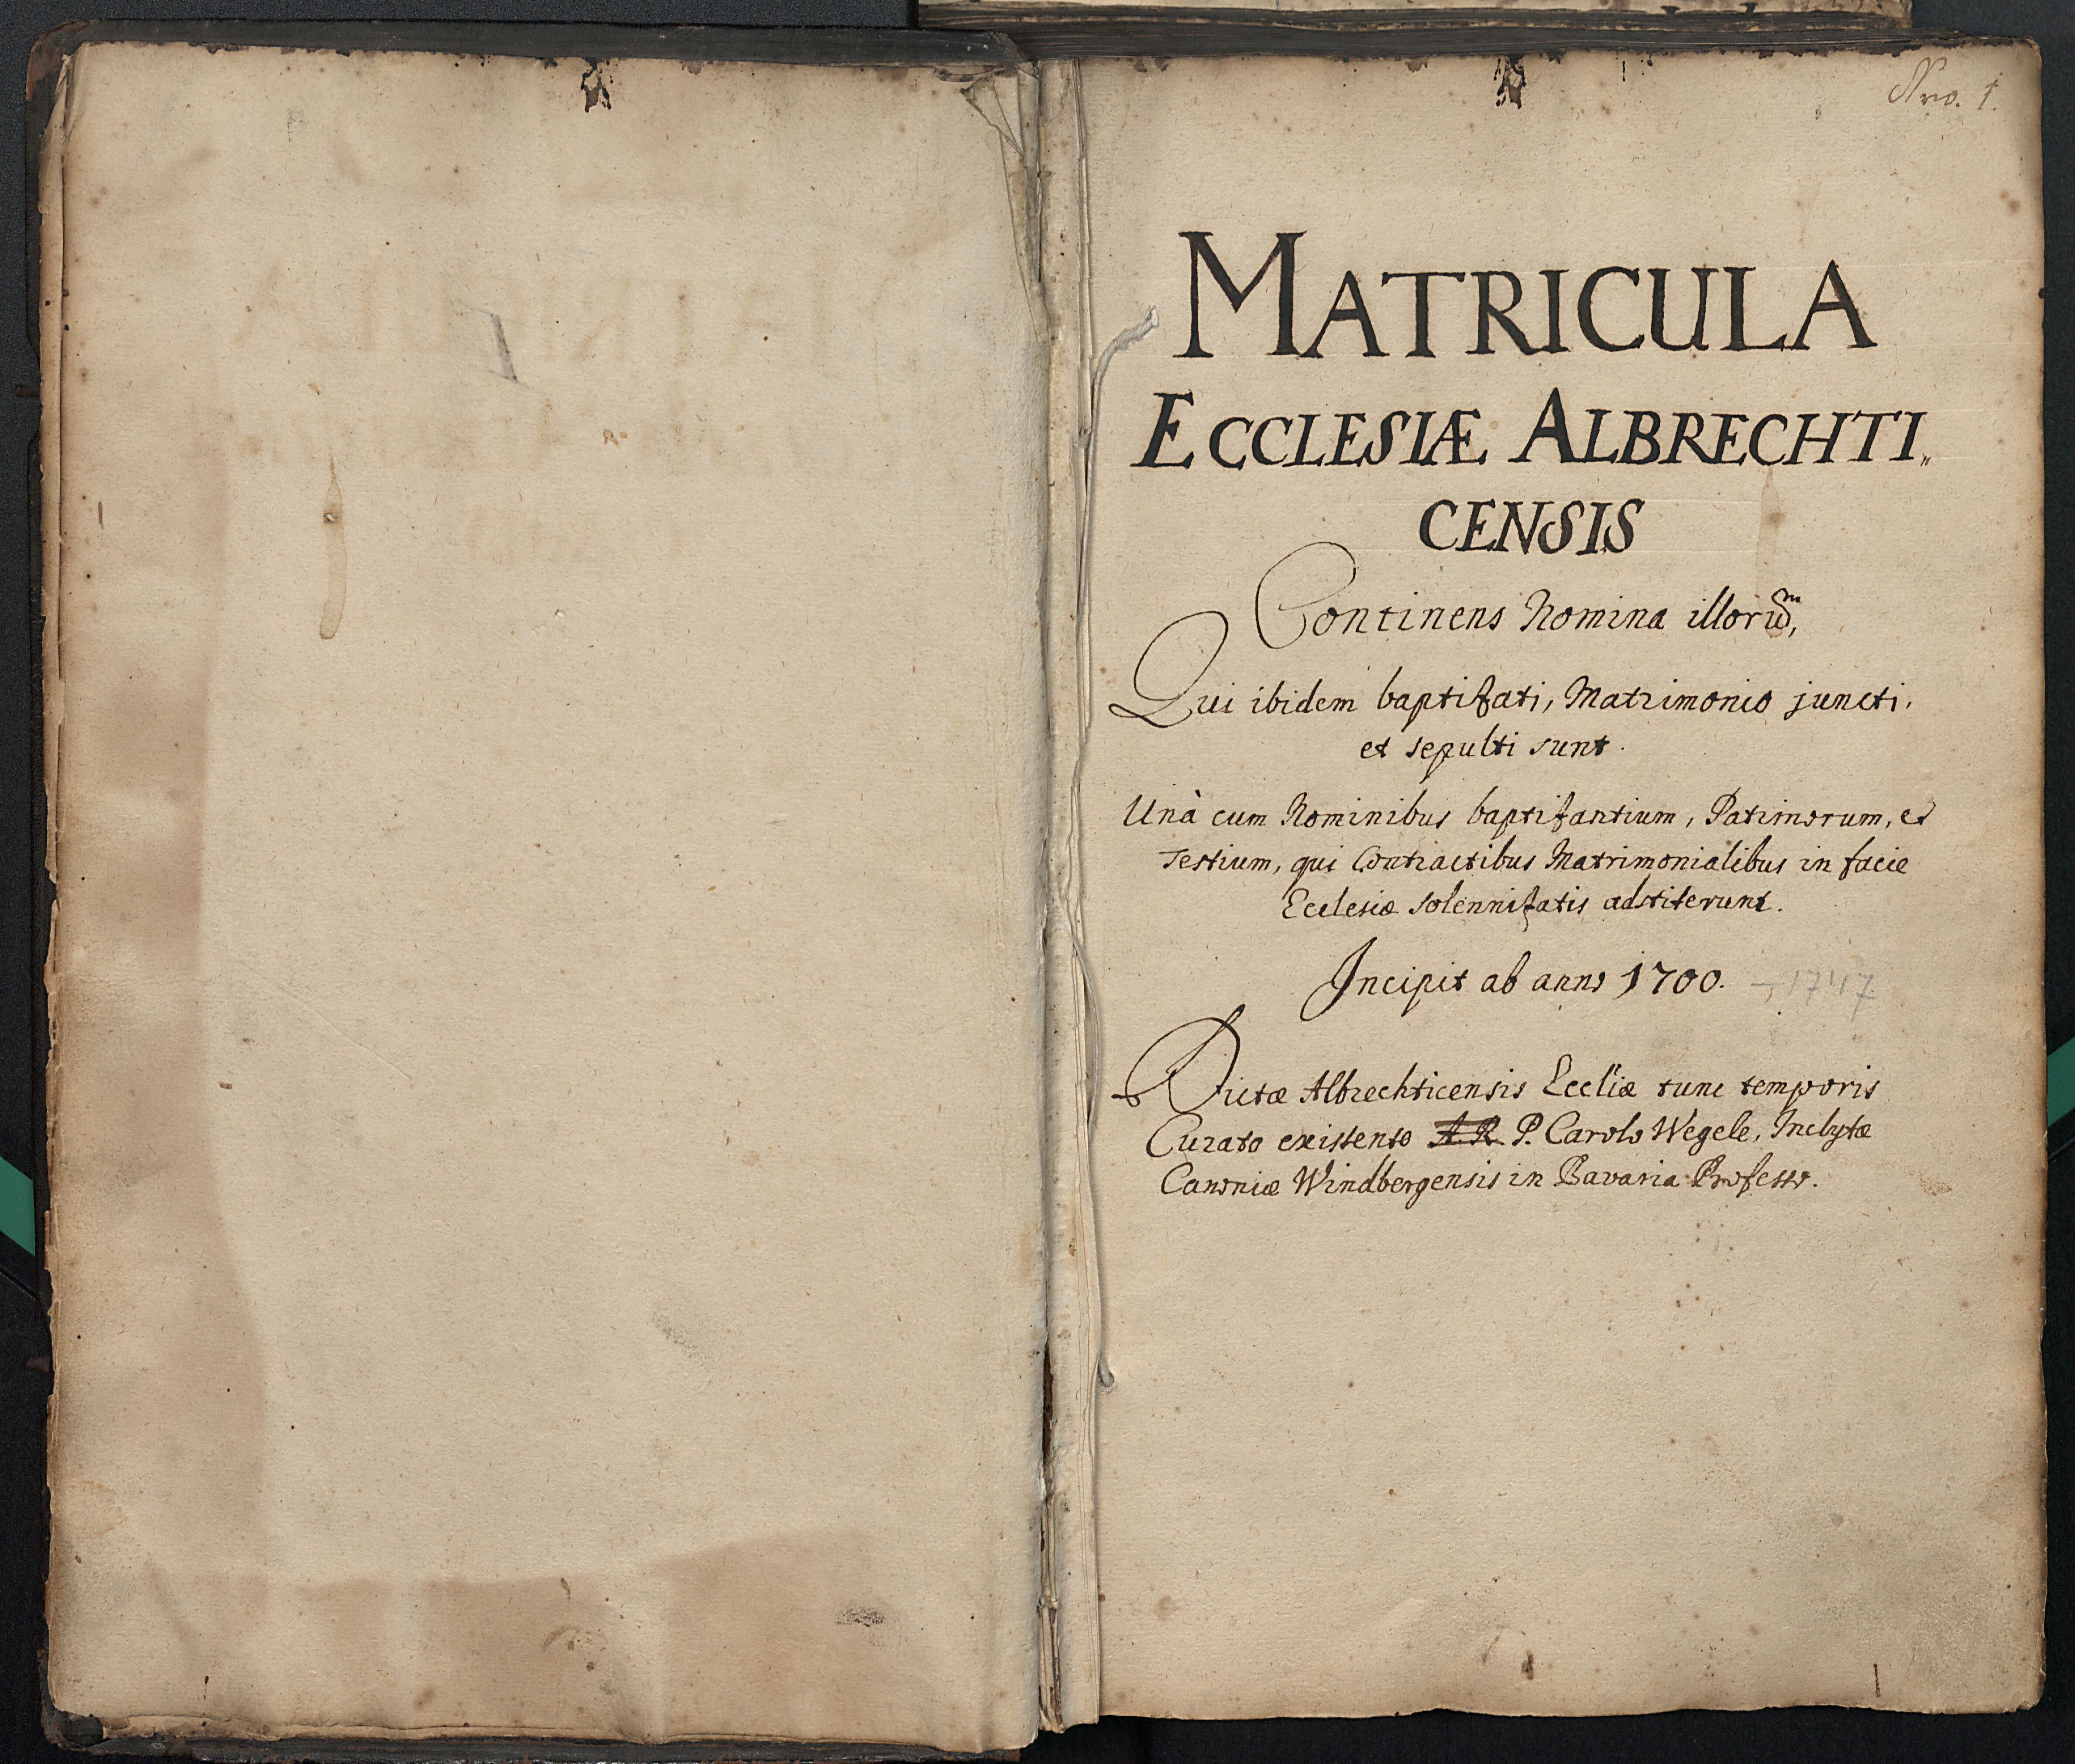 Nro. 1.
MATRICULA
ECCLESIÆ ALBRECHTI„
CENSIS
Continens Nomina illorum,
Qui ibidem baptizati, Matrimonio juncti,
et sepulti sunt.
Unà cum Nominibus baptizantium, Patrinorum, et
Testium, qui Contractibus Matrimonialibus in facie
Ecclesiæ solennizatis adstiterunt.
Incipit ab anno 1700. - 1747
Dictæ Albrechticensis Eccliæ tunc temporis
Curato existente A. R. P. Carolo Wegele, Inclytæ
Canoniæ Windbergensis in Bavaria Professo.